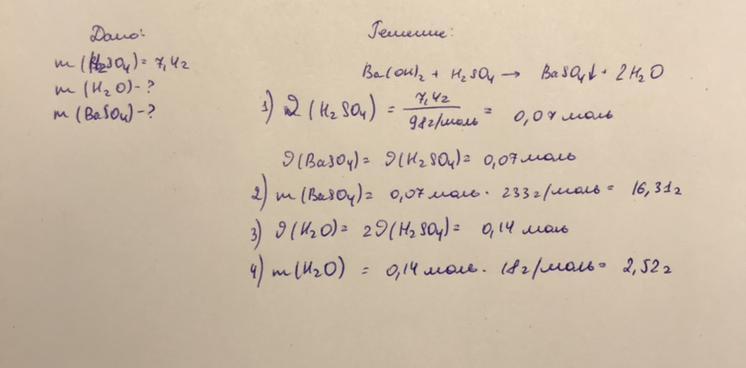 Дано:
m (H₂SO₄) = 7,4г
m (H₂O) - ?
m (BaSO₄) - ?
Решение:
Ba(OH)₂ + H₂SO₄ → BaSO₄↓ + 2H₂O
1) ν (H₂SO₄) = 7,4г / 98г/моль = 0,07 моль
ν (BaSO₄) = ν (H₂SO₄) = 0,07 моль
2) m (BaSO₄) = 0,07 моль · 233 г/моль = 16,31г
3) ν (H₂O) = 2ν (H₂SO₄) = 0,14 моль
4) m (H₂O) = 0,14 моль · 18 г/моль = 2,52 г